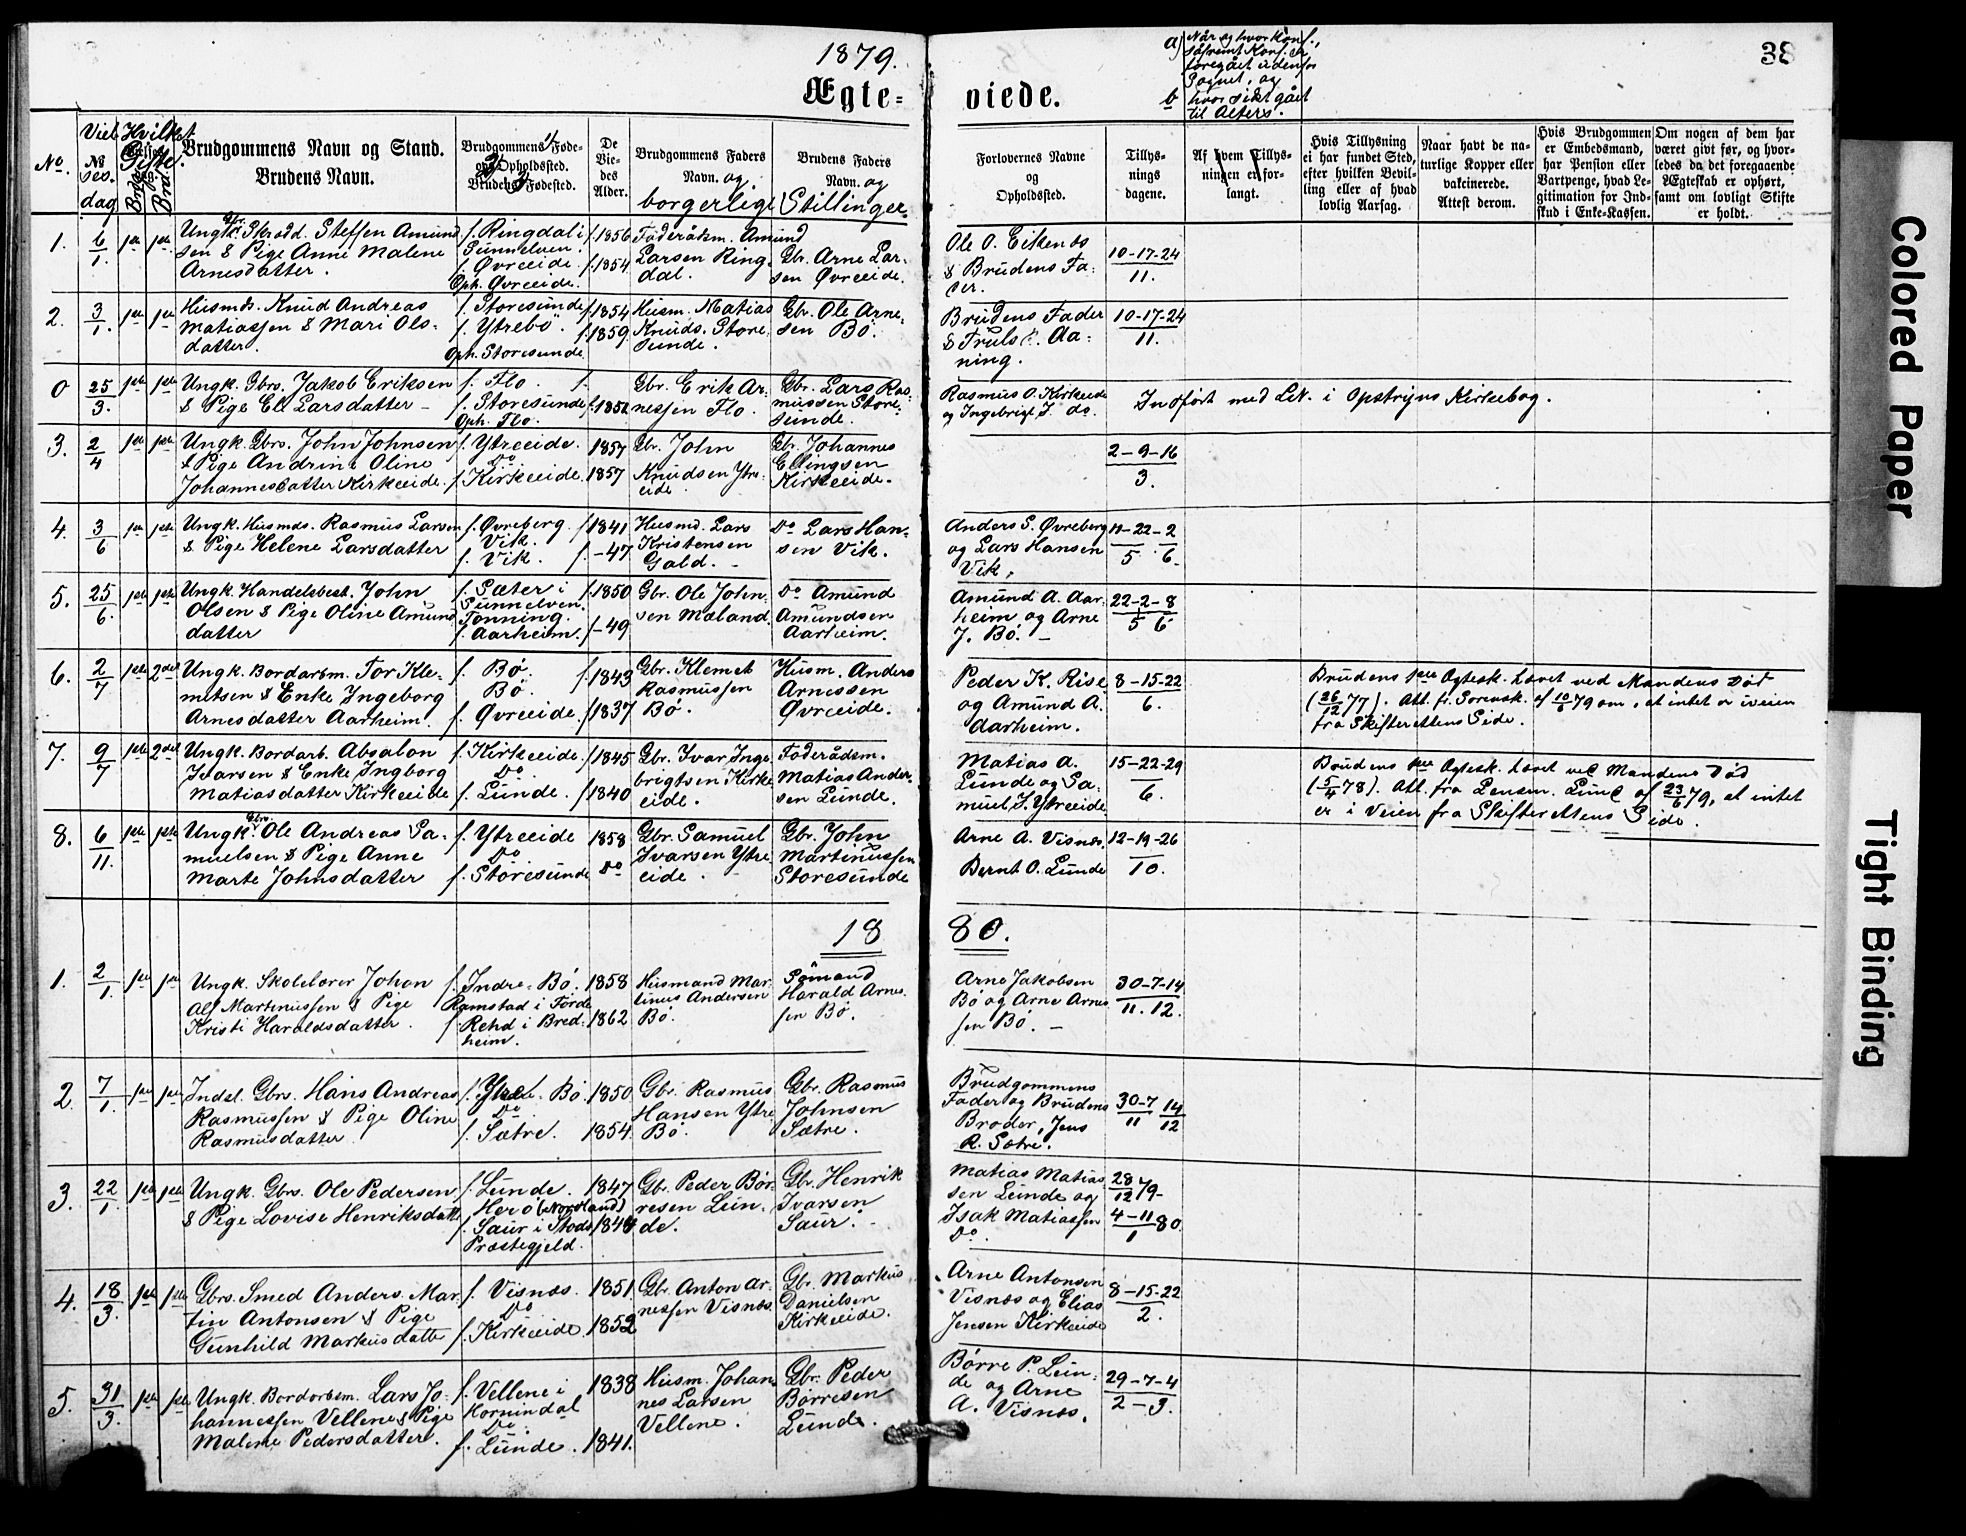 1879.
38
Ægte=
viede.
a) Når og hvor Konf.,
såfremt Konf. er
foregået udenfor
Sognet, og
b hvor sidst gået
til Alters.
No.
Viel
ses.
dag
Hvilket
Gifte.
Brudgommens Navn og Stand.
Brudens Navn.
Brudgommens Føde-
og Opholdssted.
Brudens Fødested.
De
Vie-
des
Alder.
Brudgommens Faders
Navn. og
borgerlige
Brudens Faders
Navn. og
Stillinger.
Forlovernes Navne
og
Opholdssted.
Tillys-
nings
dagene.
Af hvem Tillys-
ningen er for-
langt.
Hvis Tillysning
ei har fundet Sted,
efter hvilken Bevil-
ling eller af hvad
lovlig Aarsag.
Naar havt de na-
turlige Kopper eller
vakcinerede.
Attest derom.
Hvis Brudgommen
er Embedsmand,
har Pension eller
Vartpenge, hvad Le-
gitimation for Ind-
skud i Enke-Kassen.
Om nogen af dem har
været givt før, og hvor-
ledes da det foregaaende
Ægteskab er ophørt,
samt om lovligt Skifte
er holdt.
1. 6/1 1ste 1ste
Ungk. Gbr. Skrædd. Steffen Amund
sen & Pige Anne Malene
Arnesdatter.
f. Ringdal i
Sunnelven
f. Øvreeide
Oph. Øvreeide.
f. 1856
f. 1854
Føderådsm. Amund
Larsen Ring-
dal.
Gbr. Arne Lar-
sen Øvreeide.
Ole O. Eikenæs
& Brudens Fa-
der.
10-17-24
11.
2. 3/1. 1ste 1ste
Husmds. Knud Andreas
Matiassen & Mari Ols-
datter.
f. Storesunde
f. Ytrebö.
Oph. Storesunde
f. 1854
f. 1859
Husm. Matias
Knuds. Store
sunde.
Gbr. Ole Arne-
sen Bö.
Brudens Fader
& Truls Aa-
ning.
10-17-24
11.
0 25/3. 1ste 1ste
Ungk. Gbrs. Jakob Eriksen
& Pige Eli Larsdatter –
f. Flo.
f. Storesunde
Oph. Flo.
f.
f. 1852
Gbr. Erik Ar-
nessen Flo.
Gbr. Lars Ras-
mussen Store-
sunde.
Rasmus O. Kirkeeide
og Ingebrigt J. do.
Indført med Litr. i Opstryns Kirkebog.
3. 2/4 1ste 1ste
Ungk. Gbrs. John Johnsen
& Pige Andrine Oline
Johannesdatter Kirkeeide.
f. Ytreeide.
Do
f. Kirkeeide.
1857
1857
Gbr. John
Knudsen Ytre-
eide
Gbr. Johannes
Ellingsen
Kirkeeide.
2-9-16
3.
4. 3/6 1ste 1ste
Ungk. Husmds. Rasmus Larsen
& Pige Helene Larsdatter
f. Øvreberg.
Vik.
f. Vik.
f. 1841
f. -47
Husmd. Lars
Kristensen
Gald. –
Do Lars Han-
sen Vik.
Anders S. Øvreberg
og Lars Hansen
Vik,
11-22-2
5 . 6.
5. 25/6. 1ste 1ste
Ungk. Handelsbest. John
Olsen & Pige Oline Amund
datter
f. Sæter i
Sunnelven.
Tonning.
f. Aarheim.
f. 1850
f. -49
Gbr. Ole John-
sen Mæland.
Do Amund
Amundsen
Aarheim.
Amund A. Aar-
heim og Arne
J. Bö. –
22-2-8
5 6
6. 2/7 1ste 2det
Ungk. Bordarbm. Tor Kle-
metsen & Enke Ingeborg
Arnesdatter Aarheim.
f. Bö.
Bö.
f. Øvreeide.
f. 1843
f. 1837
Gbr. Klemet
Rasmussen
Bö.
Husm. Anders
Arnessen
Øvreeide.
Peder K. Rise
og Amund A.
Aarheim.
8-15-22
6.
Brudens 1ste Ægtesk. hævet ved Mandens Død
(26/12 77). Att. fr. Sorensk. af 10/6 79 om, at intet er iveien
fra Skifterettens Side.
7. 9/7 1ste 2det
Ungk. Bordarb. Absalon
Ivarsen & Enke Ingborg
Matiasdatter Kirkeeide
f. Kirkeeide.
Do.
f. Lunde.
f. 1845
f. 1840
Gbr. Ivar Inge
brigtsen Kirke
eide.
Føderådsm.
Matias Ander-
sen Lunde.
Matias A.
Lunde og Sa-
muel I. Ytreeide.
15-22-29
6.
Brudens 1ste Ægtesk. hævet ved Mandens Død
(5/4 78). Att. fra Lensm. Lund af 23/6 79, at intet
er i Veien fra Skifterettens Side.
8. 6/11. 1ste 1ste
Ungk. Gbrs. Ole Andreas Sa-
muelsen & Pige Anne
Marte Johnsdatter
f. Ytreeide
Do
f. Storesunde
1858
Do
Gbr. Samuel
Ivarsen Ytre
eide.
Gbr. John
Martinussen
Storesunde
Arne A. Visnæs.
Bernt O. Lunde
12-19-26
10.
18 80.
1. 2/1. 1ste 1ste
Ungk. Skolelærer Johan
Alf Martinussen & Pige
Kristi Haraldsdatter.
f. Indre-Bö.
Ramstad i Förde
f. Rehd i Bred-
heim.
1858
1862
Husmand Mar-
tinus Andersen
Bö.
Sömand
Harald Arnes-
sen Bö.
Arne Jakobsen
Bö og Arne Arnes
sen Bö. –
30-7-14
11. 12.
2 7/1. 1ste 1ste
Indst. Gbrs. Hans Andreas
Rasmussen & Pige Oline
Rasmusdatter
f. Ytre- Bö
Do.
f. Sætre.
1850
1854.
Gbr. Rasmus
Hansen Ytre
Bö.
Gbr. Rasmus
Johnsen
Sætre.
Brudgommens
Fader og Brudens
Broder, Jens
R. Sætre.
30-7 14
11 12
3. 22/1. 1ste 1ste
Ungk. Gbrs. Ole Pedersen
& Pige Lovise Henriksdatt
f. Lunde.
Herö (Nordland)
f. Saur i Stods
Præstegjeld.
1847
184
Gbr. Peder Bör-
resen Lun-
de.
Gbr. Henrik
Ivarsen
Saur. –
Matias Matias
sen Lunde og
Isak Matiassen
Do.
28/12 79-
4-11/1 80.
4. 18/3. 1ste 1ste
Gbrs. Smed Anders Mar-
tin Antonsen & Pige
Gunhild Markusdatte
f. Visnæs.
Do
f. Kirkeeide
1851.
1852
Gbr. Anton Ar-
nessen Visnæs.
Gbr. Markus
Danielsen
Kirkeeide.
Arne Antonsen
Visnæs og Elias
Jensen Kirkeeide
8-15-22
2.
5. 31/3. 1ste 1ste
Ungk. Bordarbm. Lars Jo-
hannessen Vellene & Pige
Malene Pedersdatter.
f. Vellene i
Hornindal
Do.
f. Lunde.
1838
1841.
Husm. Johan-
nes Larsen
Vellene.
Gbr. Peder
Börresen
Lunde.
Börre P. Lun-
de og Arne
A. Visnæs.
29-7-4
2-3.
Colored Paper
Tight Binding